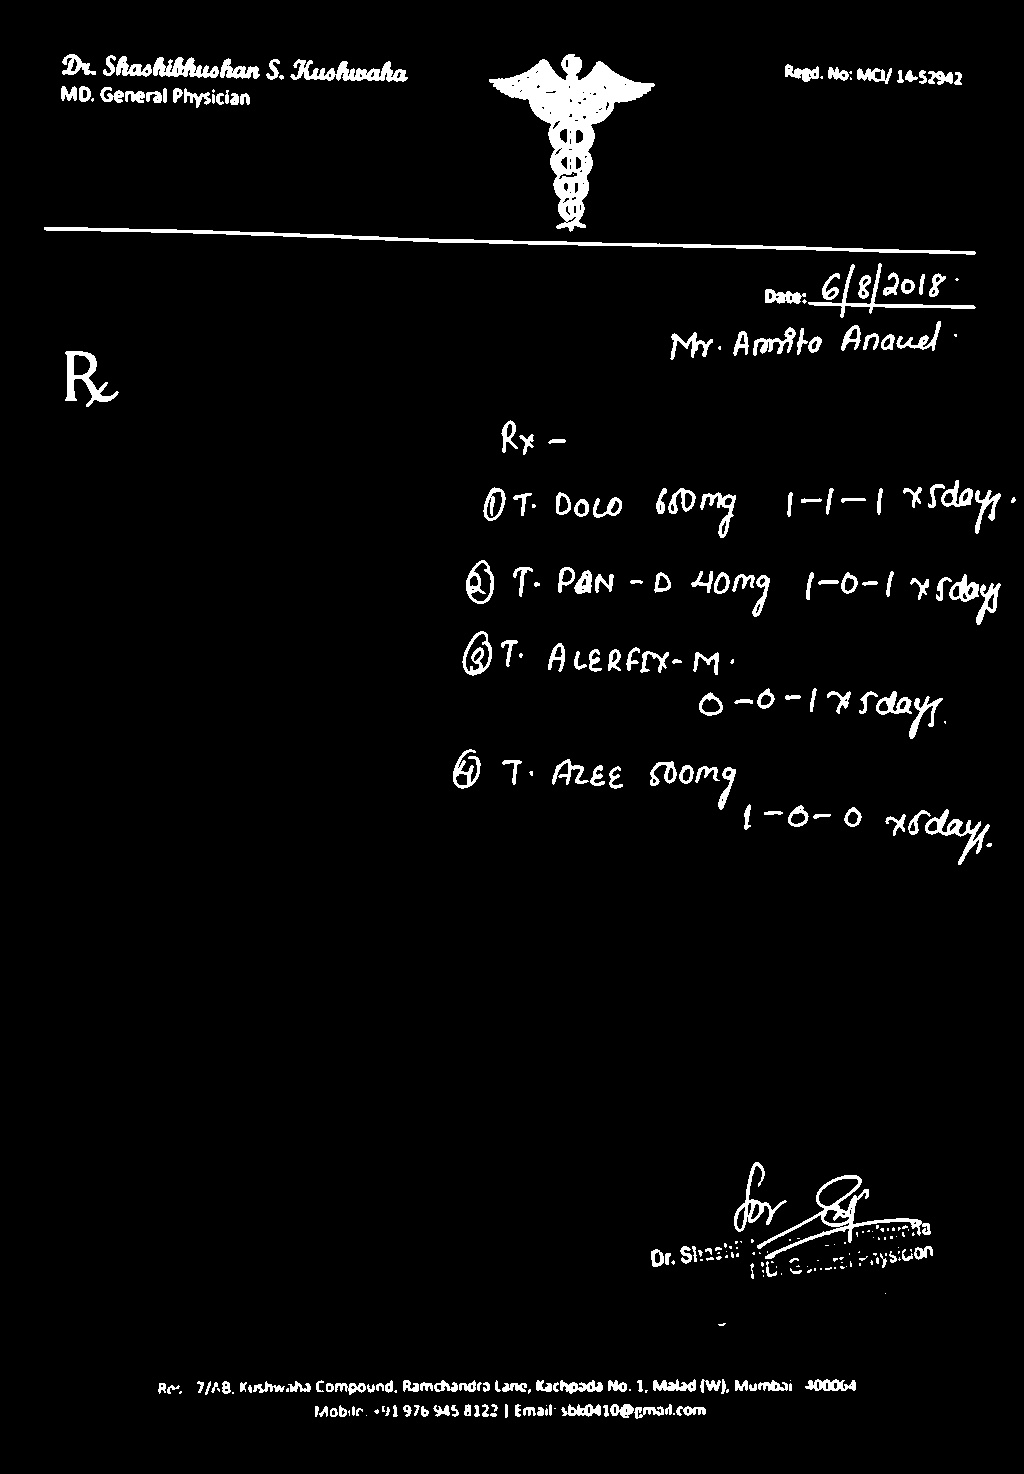 Dr. Shashibhushan S. Kushwaha
MD. General Physician
Regd. No: MCI/ 14-52942
Date: 6/8/2018
Mr. Amrito Anand
Rx
Rx -
① T. DOLO 650mg 1-1-1 x 5days.
② T. PAN-D 40mg 1-0-1 x 5days
③ T. ALERFIX-M.
0-0-1 x 5days.
④ T. AZEE 500mg
1-0-0 x 5days.
for
Dr. Shashi
MD. General Physician
7/AB, Kushwaha Compound, Ramchandra Lane, Kachpada No. 1, Malad (W), Mumbai 400064
Mobile: +91 976 945 8122 | Email: sbk0410@gmail.com